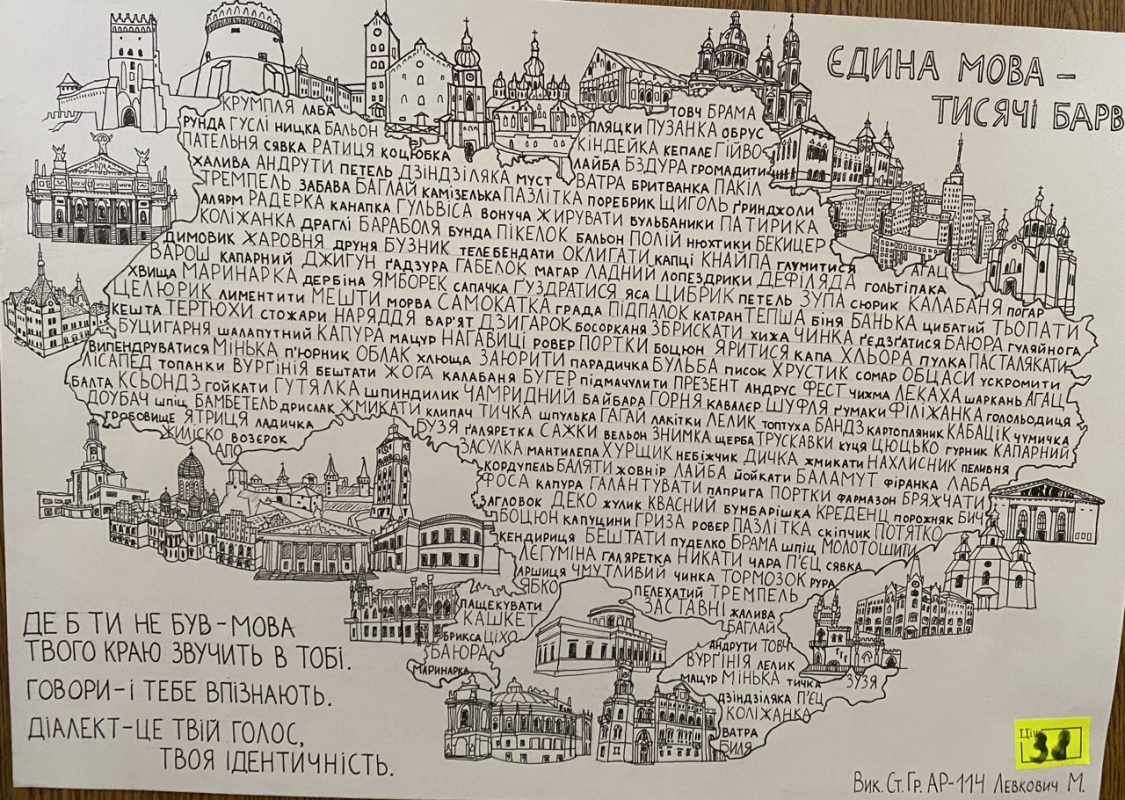 ЄДИНА МОВА –
ТИСЯЧІ БАРВ
КРУМПЛЯ ЛАБА
ТОВЧ БРАМА
РУНДА ГУСЛІ НИЦКА БАЛЬОН
ПЛЯЦКИ ПУЗАНКА ОБРУС
ПАТЕЛЬНЯ СЯВКА РАТИЦЯ КОЦЮБКА
КІНДЕЙКА КЕПАЛЕ ГІЙВО
ХАЛИВА АНДРУТИ ПЕТЕЛЬ ДЗІНДЗІЛЯКА МУСТ
ЛАЙБА БЗДУРА ГРОМАДИТИ
ТРЕМПЕЛЬ ЗАБАВА БАГЛАЙ КАМІЗЕЛЬКА ПАЗЛІТКА
ВАТРА БРИТВАНКА ПАКІЛ
ПОРЕБРИК ЩИГОЛЬ ҐРИНДЖОЛИ
АЛЯРМ РАДЕРКА КАНАПКА ГУЛЬВІСА ВОНУЧА ЖИРУВАТИ БУЛЬБАНИКИ ПАТИРИКА
КОЛІЖАНКА ДРАГЛІ БАРАБОЛЯ БУНДА ПІКЕЛОК БАЛЬОН ПОЛІЙ НЮХТИКИ БЕКИЦЕР
ДИМОВИК ЖАРОВНЯ ДРУНЯ БУЗНИК ТЕЛЕБЕНДАТИ ОКЛИГАТИ КАПЦІ КНАЙПА ГЛУМИТИСЯ
ВАРОШ КАПАРНИЙ ДЖИГУН ҐАДЗУРА ГАБЕЛОК МАГАР ЛАДНИЙ ЛОПЕЗДРИКИ ДЕФІЛЯДА ГОЛЬТІПАКА АГАЦ
ХВИЩА МАРИНАРКА ДЕРБІНА ЯМБОРЕК САПАЧКА ГУЗДРАТИСЯ ЯСА ЦИБРИК ПЕТЕЛЬ ЗУПА СЮРИК КАЛАБАНЯ ПОГАР
ЦЕЛЮРИК ЛИМЕНТИТИ МЕШТИ МОРВА САМОКАТКА ГРАДА ПІДПАЛОК КАТРАН ТЕПША БІНЯ БАНЬКА ЦИБАТИЙ ТЬОПАТИ
КЕШТА ТЕРТЮХИ СТОЖАРИ НАРЯДДЯ ВАР'ЯТ ДЗИГАРОК БОСОРКАНЯ ЗБРИСКАТИ ХИЖА ЧИНКА ҐЕДЗҐАТИСЯ БАЮРА ГУЛЯЙНОГА
БУЦИГАРНЯ ШАЛАПУТНИЙ КАПУРА МАЦУР НАГАВИЦІ РОВЕР ПОРТКИ БОЦЮН ЯРИТИСЯ КАПА ХЛЬОРА ПУЛКА ПАСТАЛЯКАТИ
ВИПЕНДРУВАТИСЯ МІНЬКА П'ЮРНИК ОБЛАК ХЛЮЩА ЗАЮРИТИ ПАРАДИЧКА БУЛЬБА ПИСОК ХРУСТИК СОМАР ОБЦАСИ УСКРОМИТИ
ЛІСАПЕД ТОПАНКИ ВУРҐІНІЯ БЕШТАТИ ЖОГА КАЛАБАНЯ БУГЕР ПІДМАЧУЛИТИ ПРЕЗЕНТ АНДРУС ФЕСТ ЧИХМА ЛЕКАХА ШАРКАНЬ АГАЦ
БАЛТА КСЬОНДЗ ГОЙКАТИ ГУТЯЛКА ШПИНДИЛИК ЧАМРИДНИЙ БАЙБАРА ГОРНЯ КАВАЛЄР ШУФЛЯ ҐУМАКИ ФІЛІЖАНКА ГОЛОЛЬОДИЦЯ
ДОУБАЧ ШПІЦ БАМБЕТЕЛЬ ДРИСЛАК ЖМИКАТИ КЛИПАЧ ТИЧКА ШПУЛЬКА ГАГАЙ ЛАКІТКИ ЛЕЛИК ТОПТУХА БАНДЗ КАРТОПЛЯНИК КАБАЦІК ЧУМИЧКА
ГРОБОВИЩЕ ЯТРИЦЯ ЛАДИЧКА БУЗЯ ҐАЛЯРЕТКА САЖКИ ВЕЛЬОН ЗНИМКА ЩЕРБА ТРУСКАВКИ КУЦЯ ЦЮЦЬКО ГУРНИК КАПАРНИЙ
ЖИЛІСКО ВОЗЄРОК
ЛАПО
ЗАСУЛКА МАНТИЛЕПА ХУРЩИК НЕБІЖЧИК ДИЧКА ЖМИКАТИ НАХЛИСНИК ПЕЛИВНЯ
КОРДУПЕЛЬ БАЛЯТИ ЖОВНІР ЛАЙБА ЙОЙКАТИ БАЛАМУТ ФІРАНКА ЛАБА
ФОСА КАПУРА ГАЛАНТУВАТИ ПАПРИГА ПОРТКИ ФАРМАЗОН БРЯЖЧАТИ
ЗАГЛОВОК ДЕКО ЖУЛИК КВАСНИЙ БУМБАРІШКА КРЕДЕНЦ ПОРОЖНЯК БИЧ
БОЦЮН КАПУЦИНИ ГРИЗА РОВЕР ПАЗЛІТКА СКІПЧИК ПОТЯТКО
КЕНДИРИЦЯ БЕШТАТИ ПУДЕЛКО БРАМА ШПІЦ МОЛОТОШИТИ
ЛЄГУМІНА ГАЛЯРЕТКА НИКАТИ ЧАРА П'ЄЦ СЯВКА
АРШИЦЯ ЧМУТЛИВИЙ ЧИНКА ТОРМОЗОК РУРА
ЯБКО ПЕЛЕХАТИЙ ТРЕМПЕЛЬ
ПАЩЕКУВАТИ ЗАСТАВНІ ЖАЛИВА
КАШКЕТ БАГЛАЙ
БРИКСА ЦІХО
БАЮРА
МАРИНАРКА
АНДРУТИ ТОВЧ
ВУРГІНІЯ ЛЕЛИК
МАЦУР МІНЬКА ТИЧКА ЗУЗЯ
ДЗІНДЗІЛЯКА П'ЄЦ
КОЛІЖАНКА
ВАТРА
БИЛЯ
ДЕ Б ТИ НЕ БУВ – МОВА
ТВОГО КРАЮ ЗВУЧИТЬ В ТОБІ.
ГОВОРИ – І ТЕБЕ ВПІЗНАЮТЬ.
ДІАЛЕКТ – ЦЕ ТВІЙ ГОЛОС,
ТВОЯ ІДЕНТИЧНІСТЬ.
38
Вик. Ст. Гр. АР-114 Левкович М.